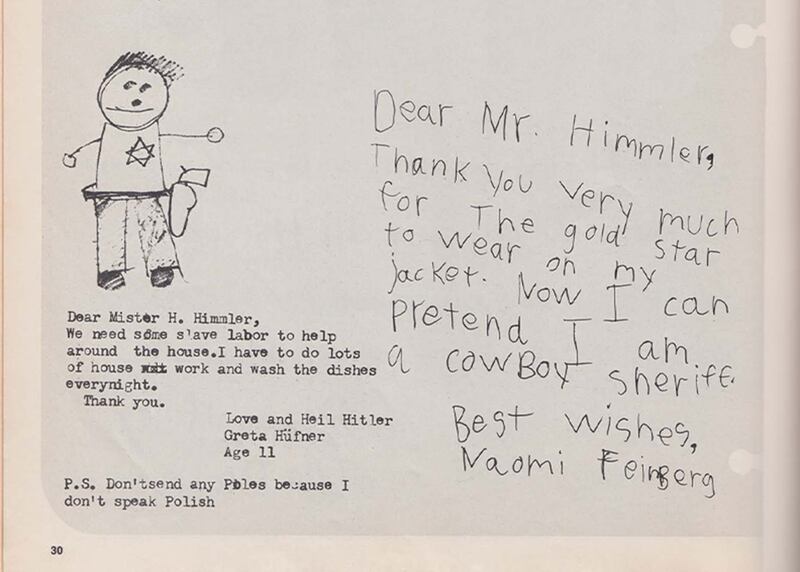 Dear Mister H. Himmler,
We need some s'ave labor to help
around the house.I have to do lots
of house work and wash the dishes
everynight.
Thank you.
Love and Heil Hitler
Greta Hüfner
Age 11
P.S. Don'tsend any Poles because I
don't speak Polish
Dear Mr. Himmler,
Thank you very much
for The gold star
to wear on my
jacket. Now I can
pretend I am
a cowBoy sheriff.
Best wishes,
Naomi FeinBerg
30